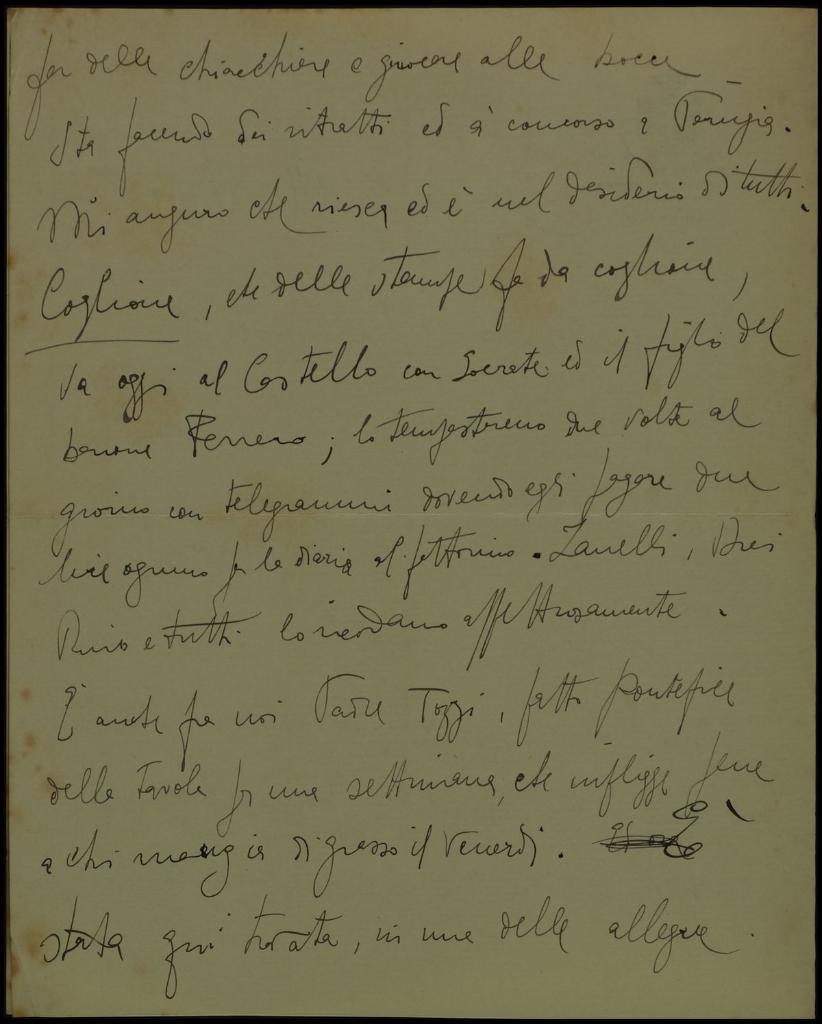 far delle chiacchiere e giuocare alle bocce
Sta facendo dei ritratti ed à concorso a Perugia.
Mi auguro che riesca ed è nel desiderio di tutti.
Coglione, che delle stampe fa da coglione,
va oggi al Castello con Socrate ed il figlio del
barone Ferrero; lo tempesteremo due volte al
giorno con telegrammi dovendo egli pagare due
lire ognuno per la diaria al fattorino. Zanelli,
Rino e tutti lo ricordano affettuosamente.
È anche fra noi Padre Tozzi, fatto pontefice
della Tavola per una settimana, che infligge pene
a chi mangia di grasso il Venerdì. È
stata qui trovata, in una delle allegre